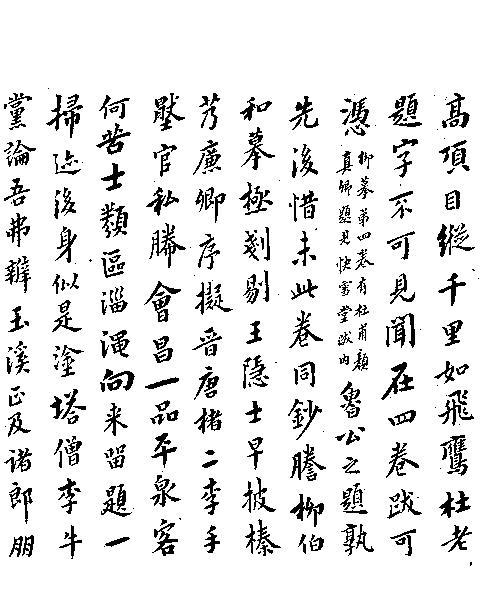 高頂目縱千里如飛鷹杜老
題字不可見聞在四卷跋可
憑柳摹第四卷有杜甫顏真卿題見快雪堂跋內魯公之題孰
先後惜未此卷同鈔謄柳伯
和摹極剗剔王隱士早披榛
廉卿序擬晉唐楮二李手
官私牓會昌一品平泉客
何苦士類區淄澠向来留題一
掃迹後身似是塗塔僧李牛
黨論吾弗辯玉溪正及諸郎朋